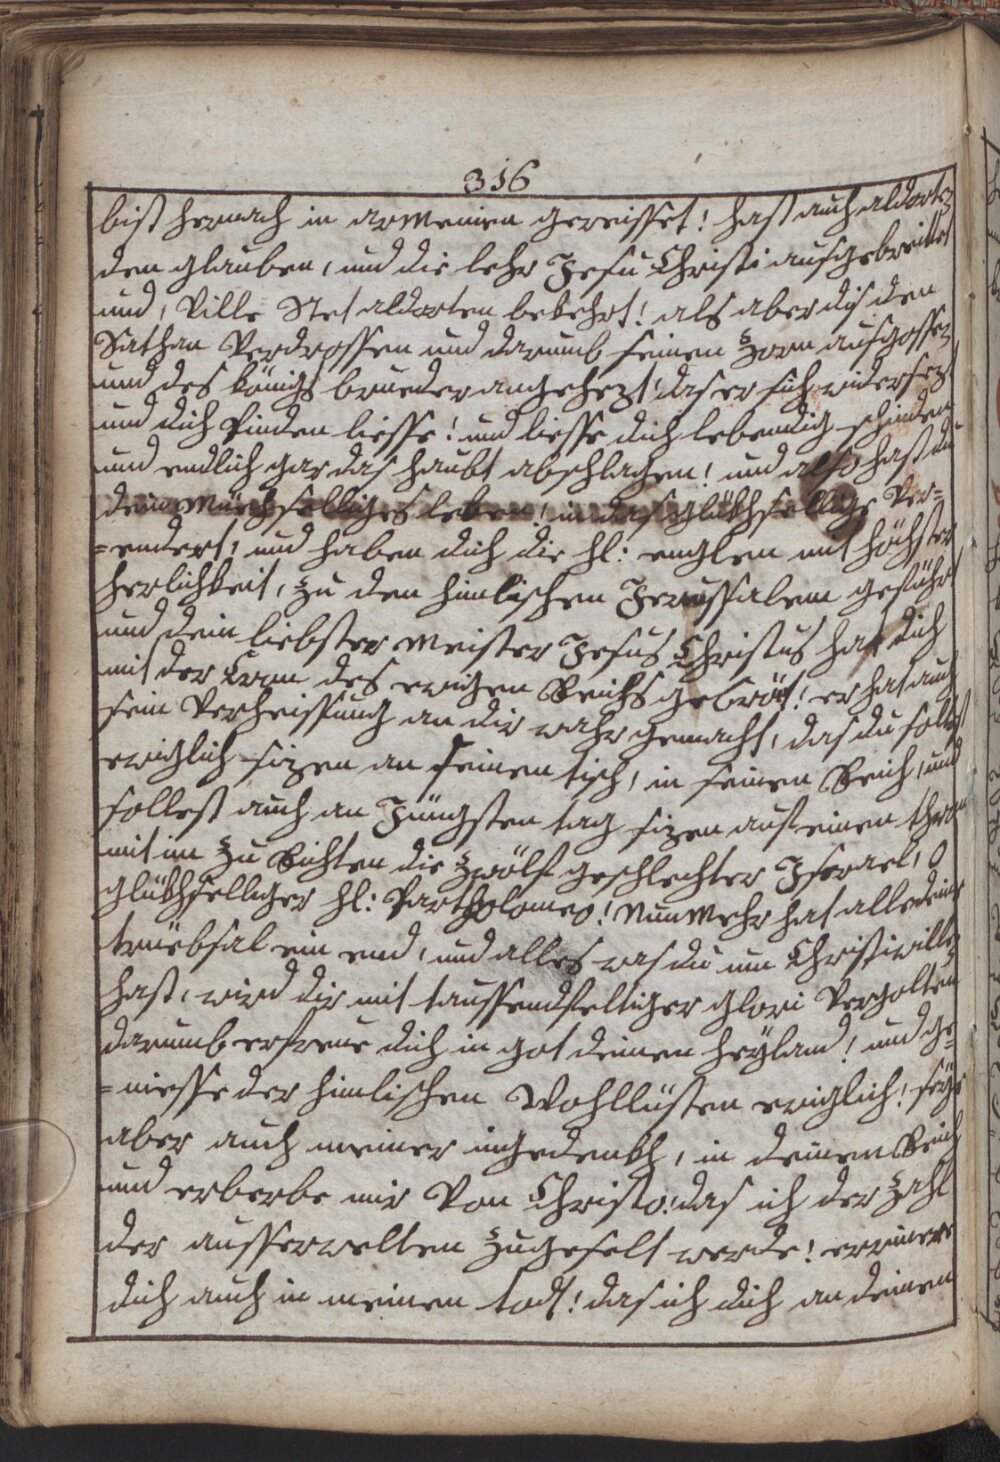 316
bist hernach in armenien gereisset! hast auch aldorten
den glauben, und die lehr Jesu Christi ausgebreittet
und, Ville Stet aldorten bekehrt! als aber dis den
Sathan Verdrossen und darumb seinen zorn ausgossen
und des königs brueder angehezt! das er sich widersezt
und dich finden liesse! und liesse dich lebendig schinden
und endlich gar das haubt abschlachen! und also hast du
dein Müehselliges leben! in das glükhsellige Ver=
=endert, und haben dich die hl: englen mit höchster
herlichkeit, zu den himlischen Jerussalem geführt
und dein liebster Meister Jesus Christus hat dich
mit der Cron des ewigen Reichs gekrönt! er hat auch
sein Verheissung an dir wahr gemacht, das du solest
ewiglich sizen an seinen tisch, in seinen Reich, und
sollest auch an Jüngsten tag sizen auf einen thron
mit im zu Richten die zwölf geschlechter Jsrael, O
glükhselliger hl: Partholomeo! Nun Mehr hat alle deine
trüebsal ein end, und alles was du um Christi willen
hast, wird dir mit taussendfeltiger glori Vergolten
darumb erfreue dich in got deinen heÿland! und ge=
=niesse der himlischen Wohllüsten ewiglich! seÿe
aber auch meiner ingedenkh, in deinen Reich
und erberbe mir Von Christo! das ich der zahl
der ausserwelten zugeselt werde! erinere
dich auch in meinen tod! das ich dich an deinen